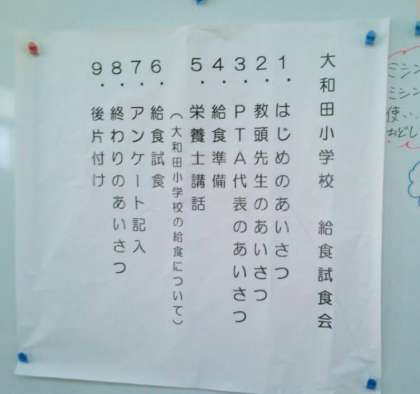 大和田小学校　給食試食会
1．はじめのあいさつ
2．教頭先生のあいさつ
3．PTA代表のあいさつ
4．給食準備
5．栄養士講話
（大和田小学校の給食について）
6．給食試食
7．アンケート記入
8．終わりのあいさつ
9．後片付け
ミシン
ミシン
使い